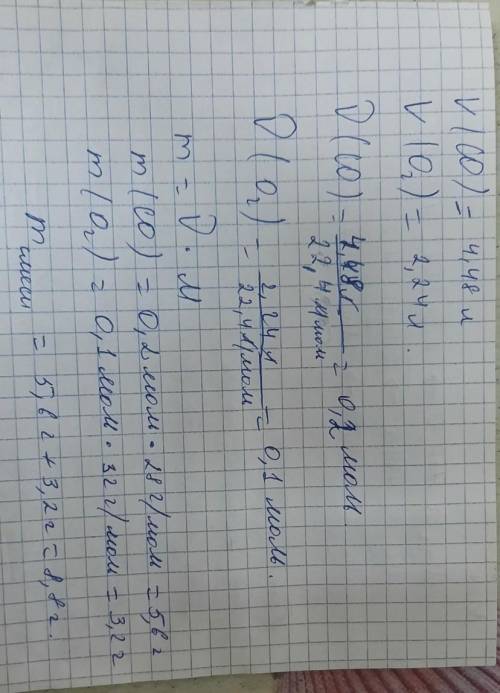 V(CO) = 4,48 л
V(O₂) = 2,24 л.
ν(CO) = 4,48 л / 22,4 л/моль = 0,2 моль
ν(O₂) = 2,24 л / 22,4 л/моль = 0,1 моль.
m = ν · M
m(CO) = 0,2 моль · 28 г/моль = 5,6 г
m(O₂) = 0,1 моль · 32 г/моль = 3,2 г
m смеси = 5,6 г + 3,2 г = 8,8 г.